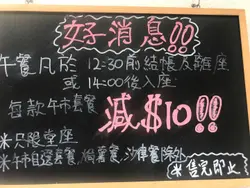 好消息!!
午餐凡於 12:30前結帳及離座
或 14:00後入座
每款午市套餐 減$10!!
米只限堂座
米午市自選套餐, 焗薯餐, 沙律餐除外
*售完即止